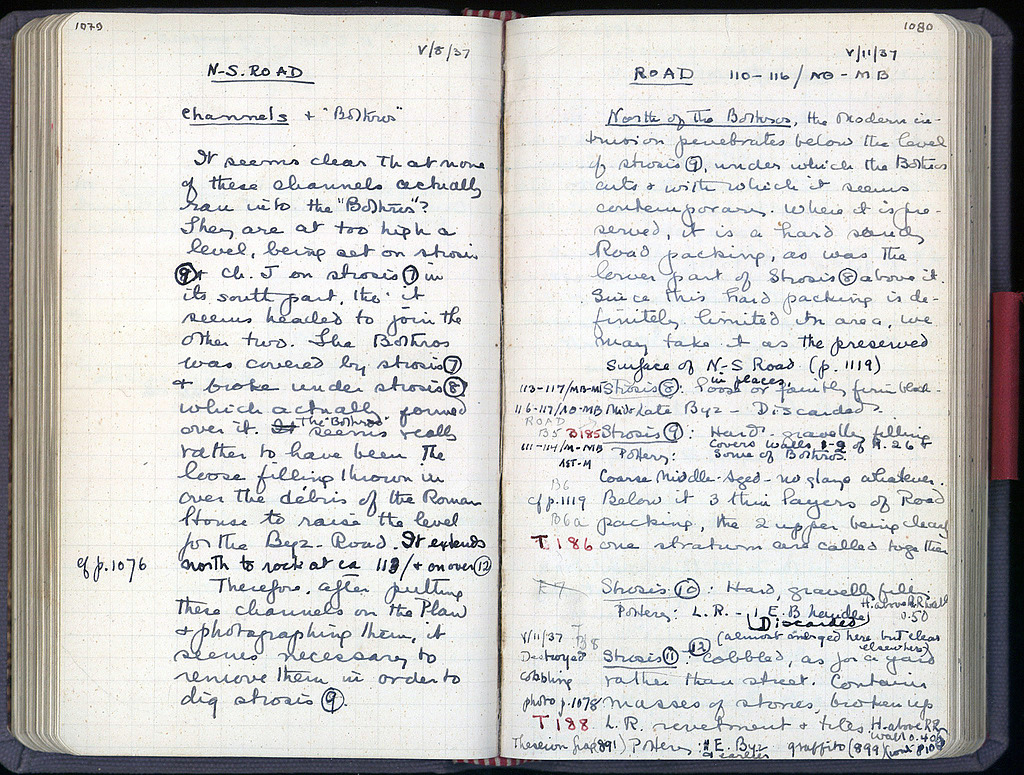 1079
V/8/37
N-S. ROAD
Channels + "Bothros"
It seems clear that none
of these channels actually
ran into the "Bothros"?
They are at too high a
level, being set on strosis
⑧ + Ch. J on strosis ⑦ in
its south part, tho' it
seems headed to join the
other two. The Bothros
was covered by strosis ⑦
+ broke under strosis ⑧
which actually formed
over it. "The Bothros" seems really
rather to have been the
loose filling thrown in
over the debris of the Roman
House to raise the level
for the Byz- Road. It extends
cf p. 1076 north to rock at ca 113/ + on over ⑫
Therefore, after putting
these channels on the Plan
+ photographing them, it
seems necessary to
remove them in order to
dig strosis ⑨.
1080
V/11/37
ROAD 110-116/ΛΘ-ΜΒ
North of the Bothros, the modern in-
trusion penetrates below the level
of strosis ⑨, under which the Bothros
cuts + with which it seems
contemporary. Where it is pre-
served, it is a hard sandy
Road packing, as was the
lower part of Strosis ⑧ above it.
Since this hard packing is de-
finitely limited in area, we
may take it as the preserved
Surface of N-S Road (p. 1119)
Strosis ⑧: Loose or in places, faintly firm
116-117/ΛΘ-ΜΒ Late Byz - Discarded.
ROAD
B5 B185 Strosis ⑨: Hard gravelly filling
Covers walls of
Pottery: Some of Bothros.
B6 Coarse Middle-Aged - no glaze whatever.
cf p. 1119 Below it 3 thin layers of Road
B6a packing, the 2 upper being clearly
T 186 one stratum are called together
B7 Strosis ⑩: Hard, gravelly filling
H. above R.R. wall 0.50
Pottery: L.R. - 1 E.B. handle
Discarded
(almost merged here but clear
elsewhere)
V/11/37 B8
Destroyed Strosis ⑪ ⑫: Cobbled, as for a yard
cobbling rather than street. Contains
photo p. 1078 masses of stones, broken up
T 188 L.R. revetment + tiles H. above R.R.
wall 0.40
Pottery: E. Byz graffito (899)
+ earlier